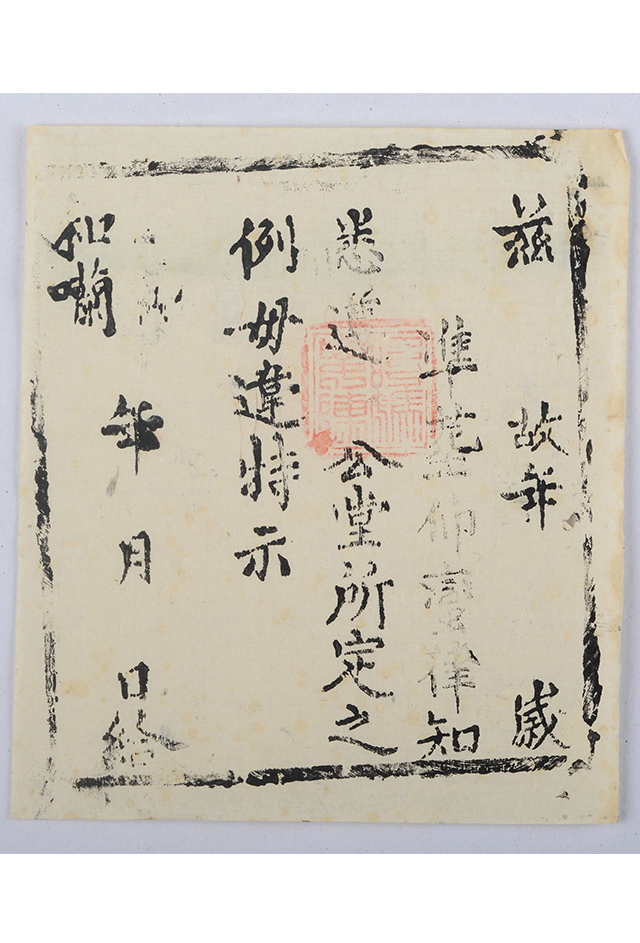 茲 故年 歲
準塟仰律知
悉遵 公堂所定之
例毋違特示
年 月 日給
和